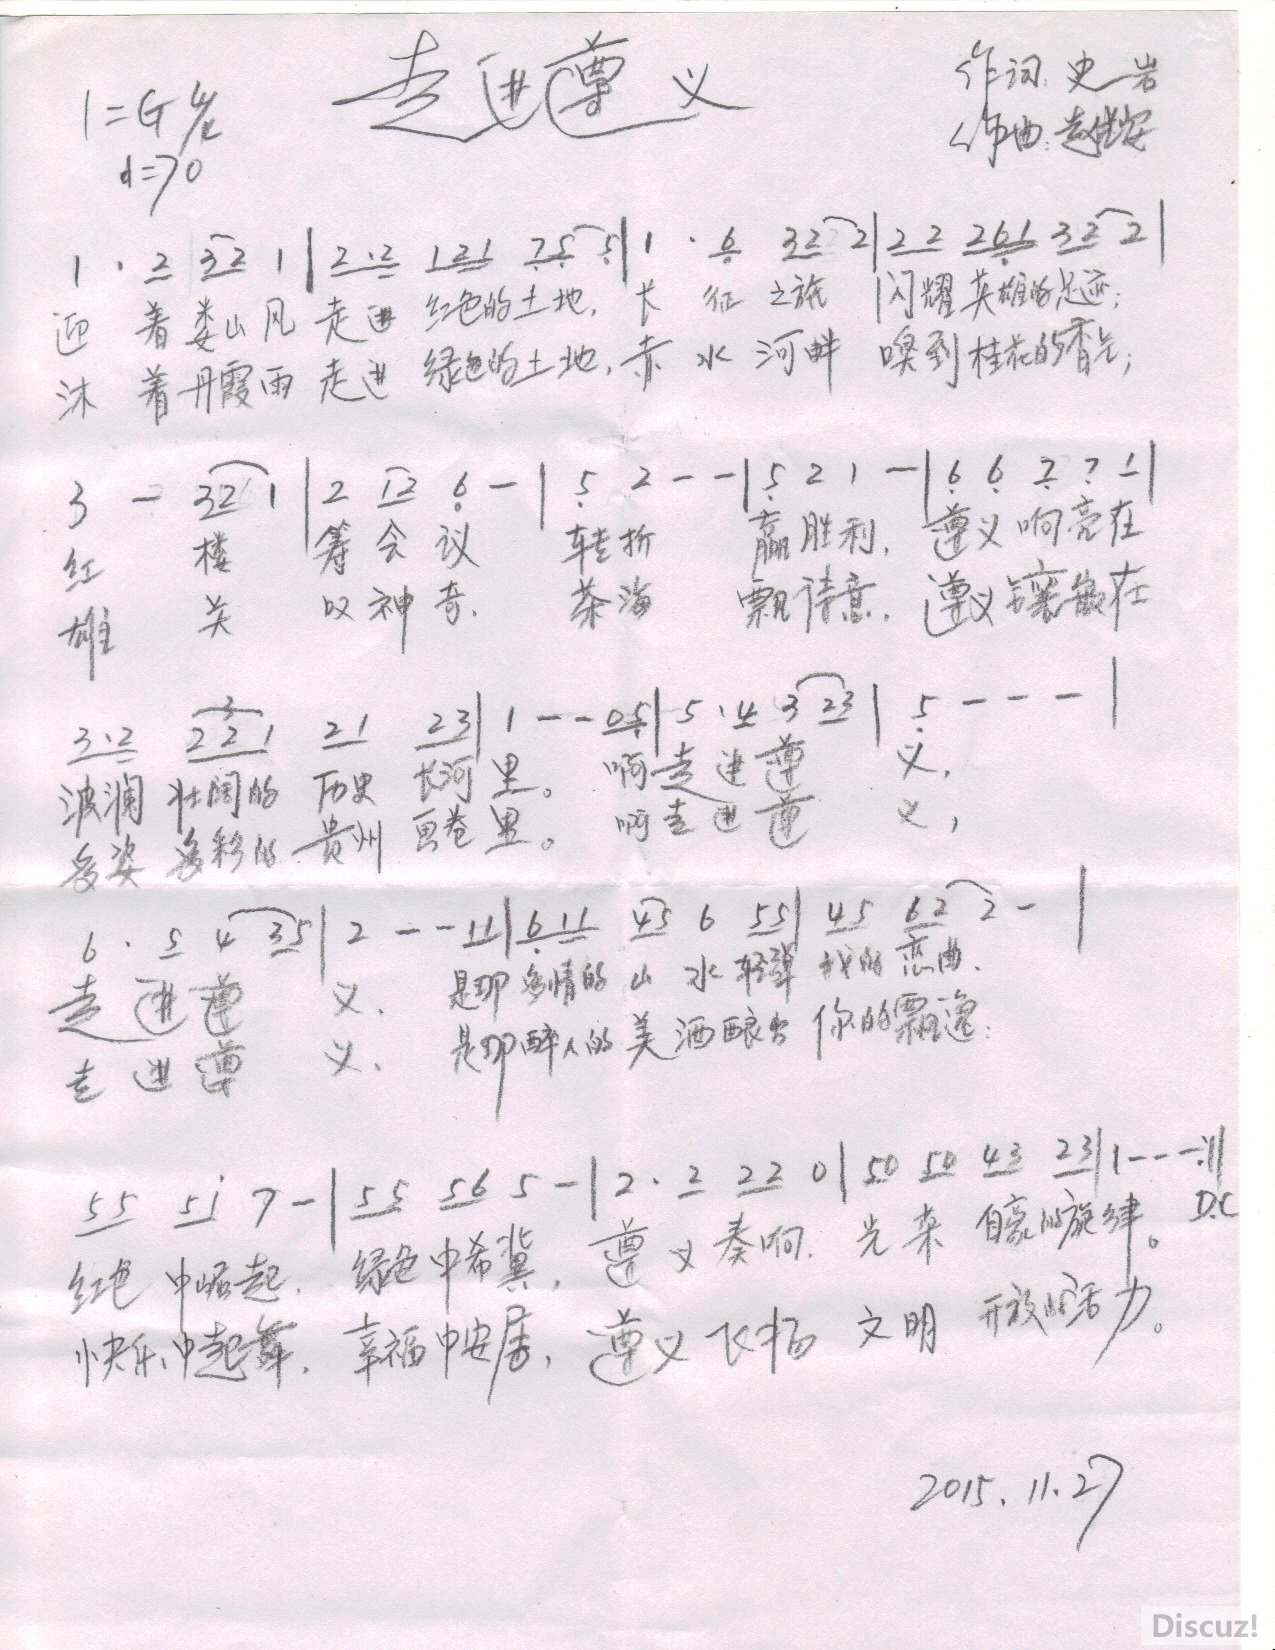 走进遵义
作词:史岩
1=G 4/4
作曲:赵
♩=70
1 · 2 32 1 | 2·2 121 75 5 | 1 · 6 32 2 | 22 261 32 2 |
迎 着娄山风 走进 红色的土地, 长 征 之旅 闪耀英雄的足迹;
沐 着丹霞雨 走进 绿色的土地, 赤 水 河畔 嗅到桂花的香气;
3 - 32 1 | 2 12 6 - | 5 2 - - | 5 2 1 - | 6 6 7 7 1 |
红 楼 筹会议 转折 赢胜利, 遵义响亮在
雄 关 叹神奇, 茶海 飘诗意, 遵义镶嵌在
3·2 221 21 23 | 1 - - 05 | 5 · 4 3 23 | 5 - - - |
波澜 壮阔的 历史 长河 里。 啊走进遵 义,
多姿 多彩的 贵州 画卷 里。 啊走进遵 义,
6 · 5 4 35 | 2 - - 11 | 611 45 6 55 | 45 62 2 - |
走进遵 义, 是那多情的 山水轻弹 我的 恋曲,
走进遵 义, 是那醉人的 美酒酿出 你的飘逸;
55 5i 7 - | 55 56 5 - | 2 · 2 22 0 | 50 50 43 23 | 1 - - - :||
D.C
红色 中崛起, 绿色中希冀, 遵义奏响 光荣 自豪的旋律。
快乐中起舞, 幸福中安居, 遵义飞扬 文明 开放的活力。
2015.11.27
Discuz!